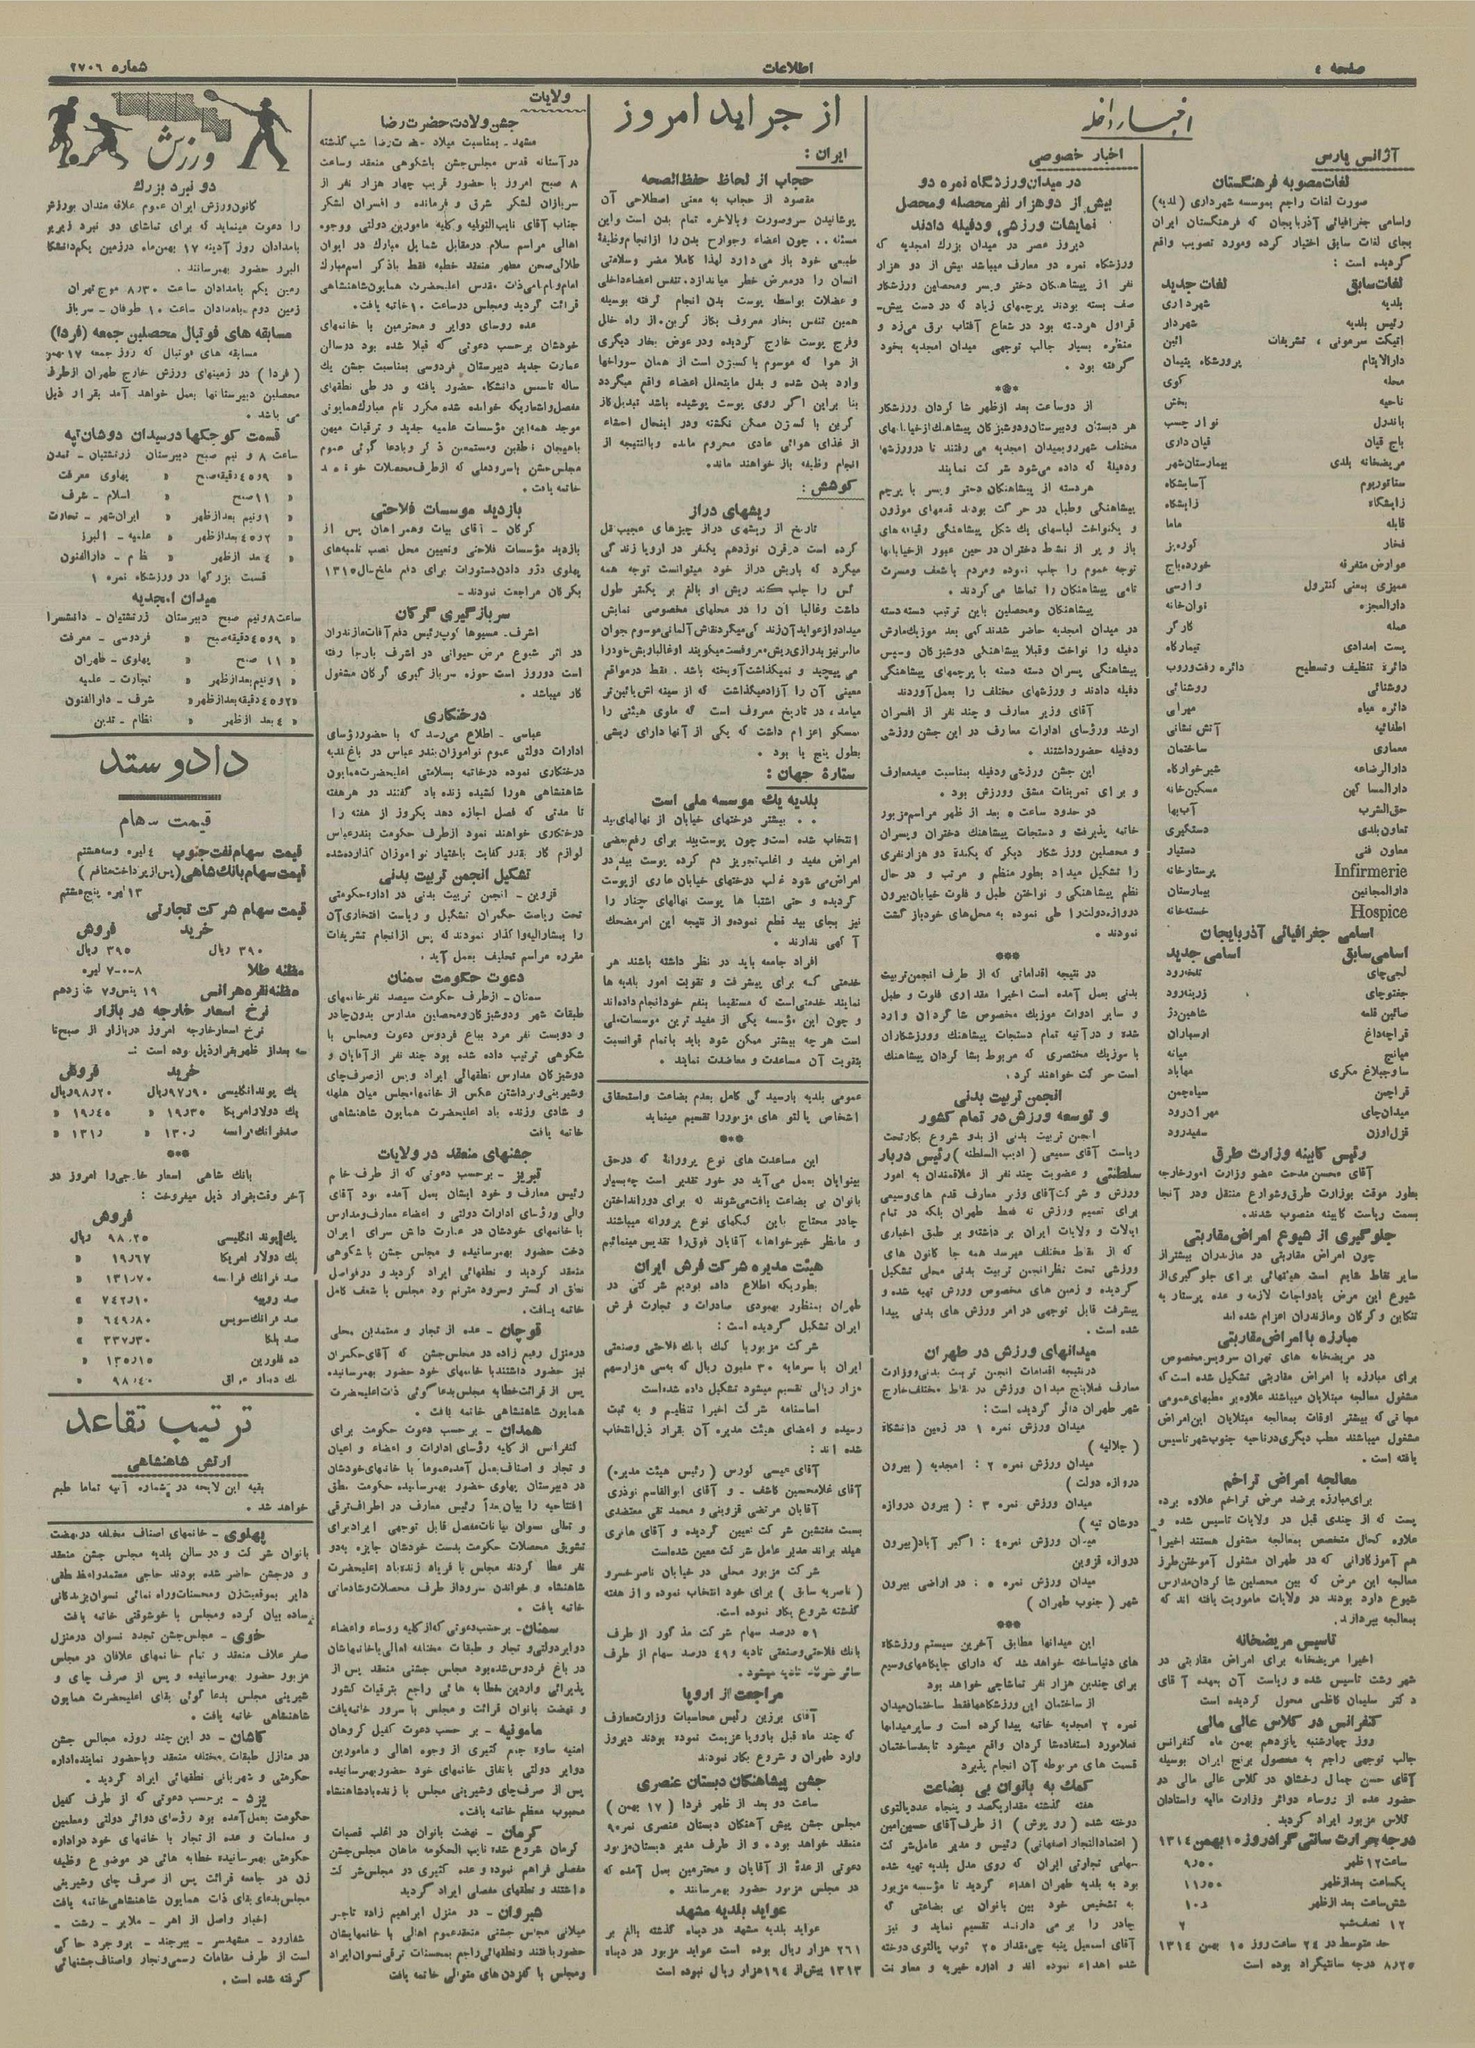 صفحه ٤
اطلاعات
شماره ۲۷۰٦
اخبار داخله
آژانس پارس
لغات مصوبه فرهنگستان
صورت لغات راجم بموسسه شهرداری (بلدیه)
واسامی جغرافیائی آذربایجان که فرهنگستان ایران
بجای لغات سابق اختیار کرده ومورد تصویب واقع
گردیده است :
لغات سابق لغات جدید
بلدیه شهرداری
رئیس بلدیه شهردار
اتیکت سرمونی ، تشریفات آئین
دارالایتام پرورشگاه یتیمان
محله کوی
ناحیه بخش
باندرل نوار چسب
باج قپان قپان داری
مریضخانه بلدی بیمارستان شهر
سناتوریوم آسایشگاه
زایشگاه زایشگاه
قابله ماما
فخار کوزه پز
عوارض متفرقه خورده باج
ممیزی بمعنی کنترول وارسی
دارالعجزه نوان خانه
عمله کارگر
پست امدادی تیمارگاه
دائره تنظیف وتسطیح دائره رفت وروب
روشنائی روشنائی
دائره میاه میرابی
اطفائیه آتش نشانی
معماری ساختمان
دارالرضاعه شیرخوارگاه
دارالمساکین مسکین خانه
حق الشرب آب بها
تعاون بلدی دستگیری
معاون فنی دستیار
Infirmerie پرستارخانه
دارالمجانین بیمارستان
Hospice خسته خانه
اسامی جغرافیائی آذربایجان
اسامی سابق اسامی جدید
لجی چای تلخه رود
جغتوچای زرینه رود
صائین قلعه شاهین دژ
قراجه داغ ارسباران
میانج میانه
ساوجبلاغ مکری مهاباد
قراچمن سیاه چمن
میدان چای مهران رود
قزل اوزن سفیدرود
رئیس کابینه وزارت طرق
آقای محسن مدحت عضو وزارت امورخارجه
بطور موقت بوزارت طرق وشوارع منتقل ودر آنجا
بسمت ریاست کابینه منصوب شدند.
جلوگیری از شیوع امراض مقاربتی
چون امراض مقاربتی در مازندران بیشتراز
سایر نقاط شایع است هیئتهائی برای جلوگیری از
شیوع این مرض باادواجات لازمه و عده پرستار به
تنکابن وگرگان ومازندران اعزام شده اند
مبارزه با امراض مقاربتی
در مریضخانه های تهران سرویس مخصوص
برای مبارزه با امراض مقاربتی تشکیل شده است که
مشغول معالجه مبتلایان میباشند علاوه بر مطبهای عمومی
مجانی که بیشتر اوقات بمعالجه مبتلایان این امراض
مشغول میباشند مطب دیگری در ناحیه جنوب شهر تاسیس
یافته است .
معالجه امراض تراخم
برای مبارزه برضد مرض تراخم علاوه برده
پست که از چندی قبل در ولایات تاسیس شده و
علاوه کحال متخصص بمعالجه مشغول هستند اخیرا
هم آموزگارانی که در طهران مشغول آموختن طرز
معالجه این مرض که بین محصلین شاگردان مدارس
شیوع دارد بودند در ولایات ماموریت یافته اند که
بمعالجه بپردازند.
تاسیس مریضخانه
اخیرا مریضخانه برای امراض مقاربتی در
شهر رشت تاسیس شده و ریاست آن بعهده آقای
دکتر سلیمان کاظمی محول گردیده است
کنفرانس در کلاس عالی مالی
روز چهارشنبه پانزدهم بهمن ماه کنفرانس
جالب توجهی راجم به محصول برنج ایران بوسیله
آقای حسن جمال رخشان در کلاس عالی مالی در
حضور عده از روساء دوائر وزارت مالیه واستادان
کلاس مزبور ایراد گردید.
درجه حرارت سانتی گراد روز ۱۵ بهمن ۱۳۱٤
ساعت ۱۲ ظهر ۹٫۵۰
یکساعت بعد از ظهر ۱۱٫۵۰
شش ساعت بعد از ظهر
۱۲ نصف شب ۷
حد متوسط در ۲٤ ساعت روز ۱۵ بهمن ۱۳۱٤
۸٫۲۵ درجه سانتیگراد بوده است
اخبار خصوصی
در میدان ورزشگاه نمره دو
بیش از دوهزار نفر محصله و محصل
نمایشات ورزشی ودفیله دادند
دیروز عصر در میدان بزرک امجدیه که
ورزشگاه نمره دو معارف میباشد بیش از دو هزار
نفر از پیشاهنگان دختر وپسر ومحصلین ورزشکار
صف بسته بودند پرچمهای زیاد که در دست پیش-
قراول هر دسته بود در شعاع آفتاب برق می زد و
منظره بسیار جالب توجهی میدان امجدیه بخود
گرفته بود .
***
از دوساعت بعد از ظهر شاگردان ورزشکار
هر دبستان ودبیرستان ودوشیزگان پیشاهنگ از خیابانهای
مختلف شهر روبمیدان امجدیه می رفتند تا در ورزشها
ودفیلهٔ که داده می شود شرکت نمایند
هر دسته از پیشاهنگان دختر وپسر با پرچم
پیشاهنگی وطبل در حرکت بودند قدمهای موزون
و یکنواخت لباسهای یک شکل پیشاهنگی وقیافه های
باز و پر از نشاط دختران در حین عبور از خیابانها
توجه عموم را جلب نموده ومردم باشعف ومسرت
تامی پیشاهنگان را تماشا می کردند .
پیشاهنگان ومحصلین باین ترتیب دسته دسته
در میدان امجدیه حاضر شدند کمی بعد موزیک مارش
دفیله را نواخت وقبلا پیشاهنگی دوشیزگان وسپس
پیشاهنگی پسران دسته دسته با پرچمهای پیشاهنگی
دفیله دادند و ورزشهای مختلف را بعمل آوردند
آقای وزیر معارف و چند نفر از افسران
ارشد ورؤسای ادارات معارف در این جشن ورزشی
ودفیله حضور داشتند.
این جشن ورزشی ودفیله بمناسبت عید معارف
و برای تمرینات مشق وورزش بود .
در حدود ساعت ۵ بعد از ظهر مراسم مزبور
خاتمه پذیرفت و دستجات پیشاهنگ دختران وپسران
و محصلین ورزشکار دیگر که یکعده دوهزار نفری
را تشکیل میداد بطور منظم و مرتب و در حال
نظم پیشاهنگی و نواختن طبل و فلوت خیابان بیرون
دروازه دولت را طی نموده به محل های خود بازگشت
نمودند .
***
در نتیجه اقداماتی که از طرف انجمن تربیت
بدنی بعمل آمده است اخیرا مقداری فلوت و طبل
و سایر ادوات موزیک مخصوص شاگردان وارد
شده و در آتیه تمام دستجات پیشاهنگ وورزشکاران
با موزیک مختصری که مربوط بشاگردان پیشاهنگ
است حرکت خواهند کرد .
انجمن تربیت بدنی
و توسعه ورزش در تمام کشور
انجمن تربیت بدنی از بدو شروع بکار تحت
ریاست آقای سمیعی ( ادیب السلطنه ) رئیس دربار
سلطنتی و عضویت چند نفر از علاقمندان به امور
ورزش و شرکت آقای وزیر معارف قدم های وسیعی
برای تعمیم ورزش نه فقط طهران بلکه در تمام
ایالات و ولایات ایران بر داشته و بر طبق اخباری
که از نقاط مختلف میرسد همه جا کانون های
ورزشی تحت نظر انجمن تربیت بدنی محلی تشکیل
گردیده و زمین های مخصوص ورزش تهیه شده و
پیشرفت قابل توجهی در امر ورزش های بدنی پیدا
شده است .
میدانهای ورزش در طهران
در نتیجه اقدامات انجمن تربیت بدنی ووزارت
معارف فعلا پنج میدان ورزش در نقاط مختلف خارج
شهر طهران دائر گردیده است :
میدان ورزش نمره ۱ در زمین دانشگاه
( جلالیه )
میدان ورزش نمره ۲ : امجدیه ( بیرون
دروازه دولت )
میدان ورزش نمره ۳ : ( بیرون دروازه
دوشان تپه )
میدان ورزش نمره ٤ : اکبر آباد (بیرون
دروازه قزوین
میدان ورزش نمره ۵ : در اراضی بیرون
شهر ( جنوب طهران )
***
این میدانها مطابق آخرین سیستم ورزشگاه
های دنیا ساخته خواهد شد که دارای جایگاههای وسیع
برای چندین هزار نفر تماشاچی خواهد بود
از ساختمان این ورزشگاهها فقط ساختمان میدان
نمره ۲ امجدیه خاتمه پیدا کرده است و سایر میدانها
فعلا مورد استفاده شاگردان واقع میشود تا بعد ساختمان
قسمت های مربوطه آن انجام پذیرد
کمک به بانوان بی بضاعت
هفته گذشته مقدار یکصد و پنجاه عدد پالتوی
دوخته شده ( رو پوش ) از طرف آقای حسین امین
( اعتماد التجار اصفهانی ) رئیس و مدیر عامل شرکت
سهامی تجارتی ایران که روی مدل بلدیه تهیه شده
بود به بلدیه طهران اهداء گردید تا مؤسسه مزبور
به تشخیص خود بین بانوان بی بضاعتی که
چادر را بر می دارند تقسیم نماید و نیز
آقای اسمعیل پنبه چی مقدار ۲۵ ثوب پالتوی دوخته
شده اهداء نموده اند و اداره خیریه و معاونت
از جراید امروز
ایران :
حجاب از لحاظ حفظ الصحه
مقصود از حجاب به معنی اصطلاحی آن
پوشانیدن سر وصورت وبالاخره تمام بدن است واین
مسئله .. چون اعضاء وجوارح بدن را از انجام وظیفهٔ
طبیعی خود باز می دارد لهذا کاملا مضر وسلامتی
انسان را در معرض خطر میاندازد. تنفس اعضاء داخلی
و عضلات بواسطه پوست بدن انجام گرفته بوسیله
همین تنفس بخار معروف بکاز کربن، از راه خلل
وفرج پوست خارج گردیده ودر عوض بخار دیگری
از هوا که موسوم با کسیژن است از همان سوراخها
وارد بدن شده و بدل مایتحلل اعضاء واقع میگردد
بنا براین اگر روی پوست پوشیده باشد تبدیل کاز
کربن با کسیژن ممکن نگشته ودر اینحال احشاء
از غذای هوائی عادی محروم مانده وبالنتیجه از
انجام وظیفه باز خواهند ماند.
کوشش :
ریشهای دراز
تاریخ از ریشهای دراز چیزهای عجیب نقل
کرده است در قرن نوزدهم یکنفر در اروپا زندگی
میکرد که باریش دراز خود میتوانست توجه همه
کس را جلب کند ریش او بالغ بر یکمتر طول
داشت وغالبا آن را در محلهای مخصوصی نمایش
میداد واز عواید آن زندگی میکرد نقاش آلمانی موسوم بجوان
مالمر نیز بدرازی ریش معروفست میگویند او غالبا ریش خود را
می پیچید و نمیگذاشت آویخته باشد . فقط در مواقع
معینی آن را آزاد میگذاشت که از سینه اش پائین تر
میامد ، در تاریخ معروف است که ملوی هیئتی را
بمسکو اعزام داشت که یکی از آنها دارای ریشی
بطول پنج پا بود .
ستارهٔ جهان :
بلدیه یک موسسه ملی است
.. بیشتر درختهای خیابان از نهالهای بید
انتخاب شده است و چون پوست بید برای رفع بعضی
امراض مفید و اغلب تجویز دم کرده پوست بید در
امراض می شود غالب درختهای خیابان عاری از پوست
گردیده و حتی اشتباها پوست نهالهای چنار را
نیز بجای بید قطع نموده و از نتیجه این امر مضحک
آگهی ندارند .
افراد جامعه باید در نظر داشته باشند هر
خدمتی که برای پیشرفت و تقویت امور بلدیه ها
نمایند خدمتی است که مستقیما بنفع خود انجام داده اند
و چون این مؤسسه یکی از مفید ترین موسسات ملی
است هرچه بیشتر ممکن شود باید با تمام قوا نسبت
بتقویت آن مساعدت و معاضدت نمایند .
عمومی بلدیه بارسیدگی کامل بعدم بضاعت واستحقاق
اشخاص پالتو های مزبور را تقسیم مینماید
***
این مساعدت های نوع پرورانهٔ که در حق
بینوایان بعمل می آید در خور تقدیر است چه بسیار
بانوان بی بضاعت یافت می شوند که برای دور انداختن
چادر محتاج باین کمکهای نوع پرورانه میباشند
و ما نظر خیرخواهانه آقایان فوق را تقدیس مینمائیم
هیئت مدیره شرکت فرش ایران
بطوریکه اطلاع داده بودیم شرکتی در
طهران بمنظور بهبودی صادرات و تجارت فرش
ایران تشکیل گردیده است :
شرکت مزبور با کمک بانک فلاحتی وصنعتی
ایران با سرمایه ۳۰ ملیون ریال که بسی هزار سهم
هزار ریالی تقسیم میشود تشکیل داده شده است
اساسنامه شرکت اخیرا تنظیم و به ثبت
رسیده و اعضای هیئت مدیره آن بقرار ذیل انتخاب
شده اند :
آقای عیسی کورس ( رئیس هیئت مدیره )
آقای غلامحسین کاشف و آقای ابوالقاسم نوذری
آقایان مرتضی قزوینی و محمد تقی معتضدی
بسمت مفتشین شرکت تعیین گردیده و آقای هانری
هیلد براند مدیر عامل شرکت معین شده است
شرکت مزبور محلی در خیابان ناصر خسرو
( ناصریه سابق ) برای خود انتخاب نموده واز هفته
گذشته شروع بکار نموده است.
۵۱ درصد سهام شرکت مذکور از طرف
بانک فلاحتی وصنعتی تادیه و ٤۹ درصد سهام از طرف
سائر شرکاء تادیه میشود .
مراجعت از اروپا
آقای برزین رئیس محاسبات وزارت معارف
که چند ماه قبل باروپا عزیمت نموده بودند دیروز
وارد طهران و شروع بکار نمودند
جشن پیشاهنگان دبستان عنصری
ساعت دو بعد از ظهر فردا ( ۱۷ بهمن )
مجلس جشن پیش آهنگان دبستان عنصری نمره ۹۰
منعقد خواهد بود . و از طرف مدیر دبستان مزبور
دعوتی از عدهٔ از آقایان و محترمین بعمل آمده که
در مجلس مزبور حضور بهمرسانند .
عواید بلدیه مشهد
عواید بلدیه مشهد در دیماه گذشته بالغ بر
۲٦۱ هزار ریال بوده است عواید مزبور در دیماه
۱۳۱۳ بیش از ۱٦٤ هزار ریال نبوده است
ولایات
جشن ولادت حضرت رضا
مشهد - بمناسبت میلاد حضرت رضا شب گذشته
در آستانه قدس مجلس جشن باشکوهی منعقد وساعت
۸ صبح امروز با حضور قریب چهار هزار نفر از
سربازان لشکر شرق و فرمانده و افسران لشکر
جناب آقای نایب التولیه وکلیه مامورین دولتی ووجوه
اهالی مراسم سلام در مقابل شمایل مبارک در ایوان
طلائی صحن مطهر منعقد خطبه فقط باذکر اسم مبارک
امام و نام نامی ذات مقدس اعلیحضرت همایون شاهنشاهی
قرائت گردید ومجلس در ساعت ۱۰ خاتمه یافت .
عده روسای دوایر و محترمین با خانمهای
خودشان برحسب دعوتی که قبلا شده بود در سالن
عمارت جدید دبیرستان فردوسی بمناسبت جشن یک
ساله تاسیس دانشگاه حضور یافته و در طی نطقهای
مفصل واشعاریکه خوانده شده مکرر نام مبارک همایونی
موجد همه این مؤسسات علمیه جدید و ترقیات میهن
باهیجان ناطقین ومستمعین ذکر و با دعا گوئی عموم
مجلس جشن با سرودهائی که از طرف محصلات خوانده شد
خاتمه یافت .
بازدید موسسات فلاحتی
گرگان - آقای بیات وهمراهان پس از
بازدید مؤسسات فلاحتی وتعیین محل نصب تلمبه های
پهلوی دژ و دادن دستورات برای دفع ملخ سال ۱۳۱۵
بگرگان مراجعت نمودند .
سربازگیری گرگان
اشرف. مسیوها کوب رئیس دفع آفات مازندران
در اثر شیوع مرض حیوانی در اشرف بآنجا رفته
است دوروز است حوزه سربازگیری گرگان مشغول
کار میباشد .
درختکاری
عباسی - اطلاع میرسد که با حضور رؤسای
ادارات دولتی عموم نوآموزان بندر عباس در باغ بلدیه
درختکاری نموده در خاتمه بسلامتی اعلیحضرت همایون
شاهنشاهی هورا کشیده زنده باد گفتند در هر هفته
تا مدتی که فصل اجازه دهد یکروز از هفته را
درختکاری خواهند نمود از طرف حکومت بندرعباس
لوازم کار بقدر کفایت باختیار نوآموزان گذارده شده
تشکیل انجمن تربیت بدنی
قزوین - انجمن تربیت بدنی در اداره حکومتی
تحت ریاست حکمران تشکیل و ریاست افتخاری آن
را بمشارالیه واگذار نمودند که پس از انجام تشریفات
مقرره مراسم تحلیف بعمل آید .
دعوت حکومت سمنان
سمنان - از طرف حکومت سیصد نفر خانمهای
طبقات شهر ودوشیزگان ومحصلین مدارس بدون چادر
و دویست نفر مرد بباغ فردوس دعوت ومجلس با
شکوهی ترتیب داده شده بود چند نفر از آقایان و
دوشیزگان مدارس نطقهائی ایراد وپس از صرف چای
وشیرینی وبرداشتن عکس از خانمها مجلس میان هلهله
و شادی وزنده باد اعلیحضرت همایون شاهنشاهی
خاتمه یافت
جشنهای منعقد در ولایات
تبریز - برحسب دعوتی که از طرف خانم
رئیس معارف و خود ایشان بعمل آمده بود آقای
والی ورؤسای ادارات دولتی و اعضاء معارف ومدارس
با خانمهای خودشان در عمارت دانش سرای ایران
دخت حضور بهمرسانیده و مجلس جشن با شکوهی
منعقد گردید و نطقهائی ایراد گردید و در فواصل
نطق ارکستر وسرود مترنم بود مجلس با شعف کامل
خاتمه یافت.
قوچان - عده از تجار و معتمدین محلی
در منزل رحیم زاده در مجلس جشن که آقای حکمران
نیز حضور داشتند با خانمهای خود حضور بهمرسانیده
پس از قرائت خطابه مجلس بدعا گوئی ذات اعلیحضرت
همایون شاهنشاهی خاتمه یافت .
همدان - بر حسب دعوت حکومت برای
کنفرانس از کلیه رؤسای ادارات و اعضاء و اعیان
و تجار و اصناف بعمل آمده عموما با خانمهای خودشان
در دبیرستان پهلوی حضور بهمرسانیده حکومت نطق
افتتاحیه را بیان بعداً رئیس معارف در اطراف ترقی
و تعالی نسوان بیانات مفصل قابل توجهی ایراد برای
تشویق محصلات حکومت بدست خودشان جایزه به دو
نفر عطا کردند مجلس با فریاد زنده باد اعلیحضرت
شاهنشاه و خواندن سرود از طرف محصلات و شادمانی
خاتمه یافت .
سمنان - برحسب دعوتی که از کلیه روساء واعضاء
دوایر دولتی و تجار و طبقات مختلفه اهالی با خانمهاشان
در باغ فردوس شده بود مجلس جشنی منعقد پس از
پذیرائی واردین خطابه هائی راجم بترقیات کشور
و نهضت بانوان قرائت و مجلس با سرور خاتمه یافت
مامونیه - بر حسب دعوت کفیل گروهان
امنیه ساوه جمع کثیری از وجوه اهالی و مامورین
دوایر دولتی باتفاق خانمهای خود حضور بهمرسانیده
پس از صرف چای وشیرینی مجلس با زنده باد شاهنشاه
محبوب معظم خاتمه یافت.
کرمان - نهضت بانوان در اغلب قصبات
کرمان شروع شده نایب الحکومه ماهان مجلس جشن
مفصلی فراهم نموده و عده کثیری در مجلس شرکت
داشتند و نطقهای مفصلی ایراد گردید
شیروان - در منزل ابراهیم زاده تاجر
میلانی مجلس جشنی منعقد عموم اهالی با خانمهایشان
حضور یافتند ونطقهائی راجم بمحسنات ترقی نسوان ایراد
ومجلس با کف زدن های متوالی خاتمه یافت
ورزش
دو نبرد بزرک
کانون ورزش ایران عموم علاقه مندان بورزش
را دعوت مینماید که برای تماشای دو نبرد زیر بر
بامدادان روز آدینه ۱۷ بهمن ماه در زمین یکم دانشگاه
البرز حضور بهمرسانند .
زمین یکم بامدادان ساعت ۸٫۳۰ موج تهران
زمین دوم بامدادان ساعت ۱۰ طوفان - سرباز
مسابقه های فوتبال محصلین جمعه (فردا)
مسابقه های فوتبال که روز جمعه ۱۷ بهمن
( فردا ) در زمینهای ورزش خارج طهران از طرف
محصلین دبیرستانها بعمل خواهد آمد بقرار ذیل
می باشد .
قسمت کوچکها در میدان دوشان تپه
ساعت ۸ و نیم صبح دبیرستان زرتشتیان - تمدن
« ۹ و ٤۵ دقیقه صبح « پهلوی معرفت
« ۱۱ صبح « اسلام - شرف
« ۱ ونیم بعد از ظهر « ایران شهر - تجارت
« ۲ و ٤۵ بعد از ظهر « علمیه - البرز
« ٤ بعد از ظهر « نظام - دارالفنون
قسمت بزرگها در ورزشگاه نمره ۱
میدان امجدیه
ساعت ۸ ونیم صبح دبیرستان زرتشتیان - دانشسرا
« ۹ و ٤۵ دقیقه صبح « فردوسی - معرفت
« ۱۱ صبح « پهلوی - طهران
« ۱ ونیم بعد از ظهر « تجارت - علمیه
« ۲ و ٤۵ دقیقه بعد از ظهر « شرف - دارالفنون
« ٤ بعد از ظهر « نظام - تمدن
داد و ستد
قیمت سهام
قیمت سهام نفت جنوب ٤ لیره وسه هشتم
قیمت سهام بانک شاهی (پس از پرداخت منافع )
۱۳ لیره پنج هشتم
قیمت سهام شرکت تجارتی
خرید فروش
۳۹۰ ریال ۳۹۵ ریال
مظنه طلا ۸-۰-۷ لیره
مظنه نقره هر انس ۱۹ پنس و ۷ شانزدهم
نرخ اسعار خارجه در بازار
نرخ اسعار خارجه امروز در بازار از صبح تا
سه بعد از ظهر بقرار ذیل بوده است :-
خرید فروش
یک پوند انگلیسی ۹۷٫۹۰ ریال ۹۸٫۲۰ ریال
یک دولار امریکا ۱۹٫۳۵ « ۱۹٫٤۵ «
صد فرانک فرانسه ۱۳۰٫ « ۱۳۱٫ «
**
بانک شاهی اسعار خارجی را امروز در
آخر وقت بقرار ذیل میفروخت :
فروش
یک پوند انگلیسی ۹۸٫۲۵ ریال
یک دولار امریکا ۱۹٫٦۷ «
صد فرانک فرانسه ۱۳۱٫۷۰ «
صد روپیه ۷٤۲٫۱۰ «
صد فرانک سویس ٦٤۹٫۸۰ «
صد بلگا ۳۳۷٫۳۰ «
ده فلورین ۱۳۵٫۱۵ «
یک دینار عراق ۹۸٫٤۰ «
ترتیب تقاعد
ارتش شاهنشاهی
بقیه این لایحه در شماره آتیه تماما طبع
خواهد شد .
پهلوی - خانمهای اصناف مختلفه در نهضت
بانوان شرکت و در سالن بلدیه مجلس جشن منعقد
و در جشن حاضر شده بودند حاجی معتمد واعظ نطقی
دایر بموقعیت زن ومحسنات وراه نمائی نسوان بزندگانی
ساده بیان کرده ومجلس با خوشوقتی خاتمه یافت
خوی - مجلس جشن تجدد نسوان در منزل
صفر علاف منعقد و تمام خانمهای علافان در مجلس
مزبور حضور بهمرسانیده و پس از صرف چای و
شیرینی مجلس بدعا گوئی بقای اعلیحضرت همایون
شاهنشاهی خاتمه یافت .
کاشان - در این چند روزه مجالس جشن
در منازل طبقات مختلفه منعقد وباحضور نماینده اداره
حکومتی و شهربانی نطقهائی ایراد گردید .
یزد - برحسب دعوتی که از طرف کفیل
حکومت بعمل آمده بود رؤسای دوائر دولتی ومعلمین
و معلمات و عده از تجار با خانمهای خود در اداره
حکومتی بهمرسانیده خطابه هائی در موضوع وظیفه
زن در جامعه قرائت پس از صرف چای وشیرینی
مجلس بدعای بقای ذات همایون شاهنشاهی خاتمه یافت
اخبار واصل از اهر - ملایر - رشت -
شفارود - مشهدسر - بیرجند - بروجرد حاکی
است از طرف مقامات رسمی وتجار واصناف جشنهائی
گرفته شده است .